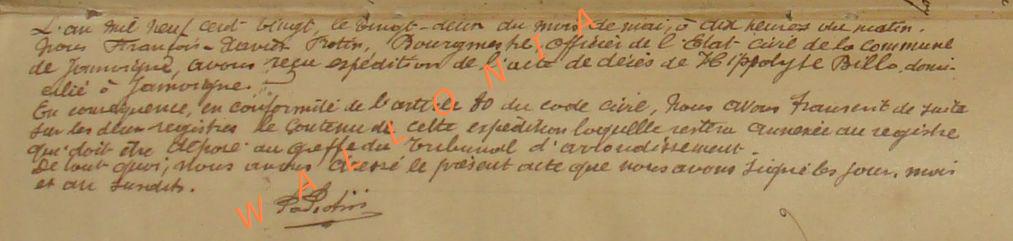 L'an mil neuf cent vingt, le vingt-deux du mois de mai, à dix heures du matin.
Nous François-Xavier Protin, Bourgmestre, officier de l'Etat civil de la commune
de Jamoigne, avons reçu expédition de l'acte de décès de Hippolyte Billo, domi-
cilié à Jamoigne.
En conséquence, en conformité de l'article 80 du code civil, nous avons transcrit de suite
sur les deux registres le contenu de cette expédition laquelle restera annexée au registre
qui doit être déposé au greffe du Tribunal d'arrondissement.
De tout quoi, nous avons dressé le présent acte que nous avons signé les jour, mois
et an susdits.
Protin
WALLONIA